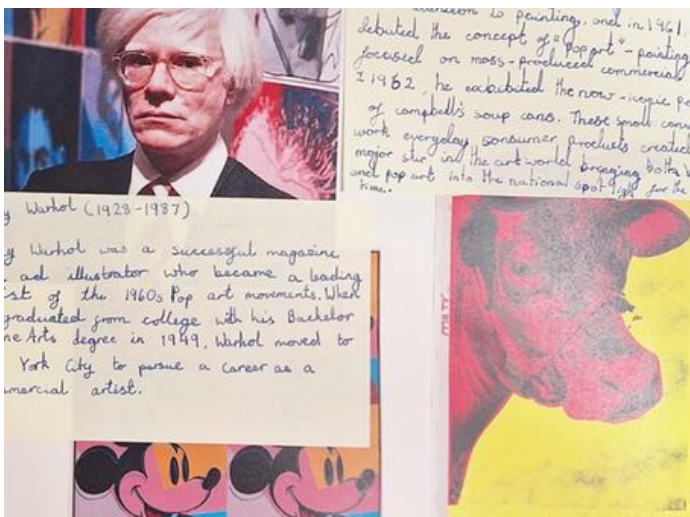 to painting, and in 1961,
debuted the concept of "pop art" - painting
focused on mass-produced commercial
I 1962, he exhibited the now-iconic pa
of campbell's soup cans. These small canv
work everyday consumer products created
major stir in the art world bringing both W
and pop art into the national spot light for the
time.
y Warhol (1928-1987)
y Warhol was a successful magazine
ad illustrator who became a leading
st of the 1960s Pop art movements. When
graduated from college with his Bachelor
ne Arts degree in 1949, Warhol moved to
York City to pursue a career as a
mmercial artist.